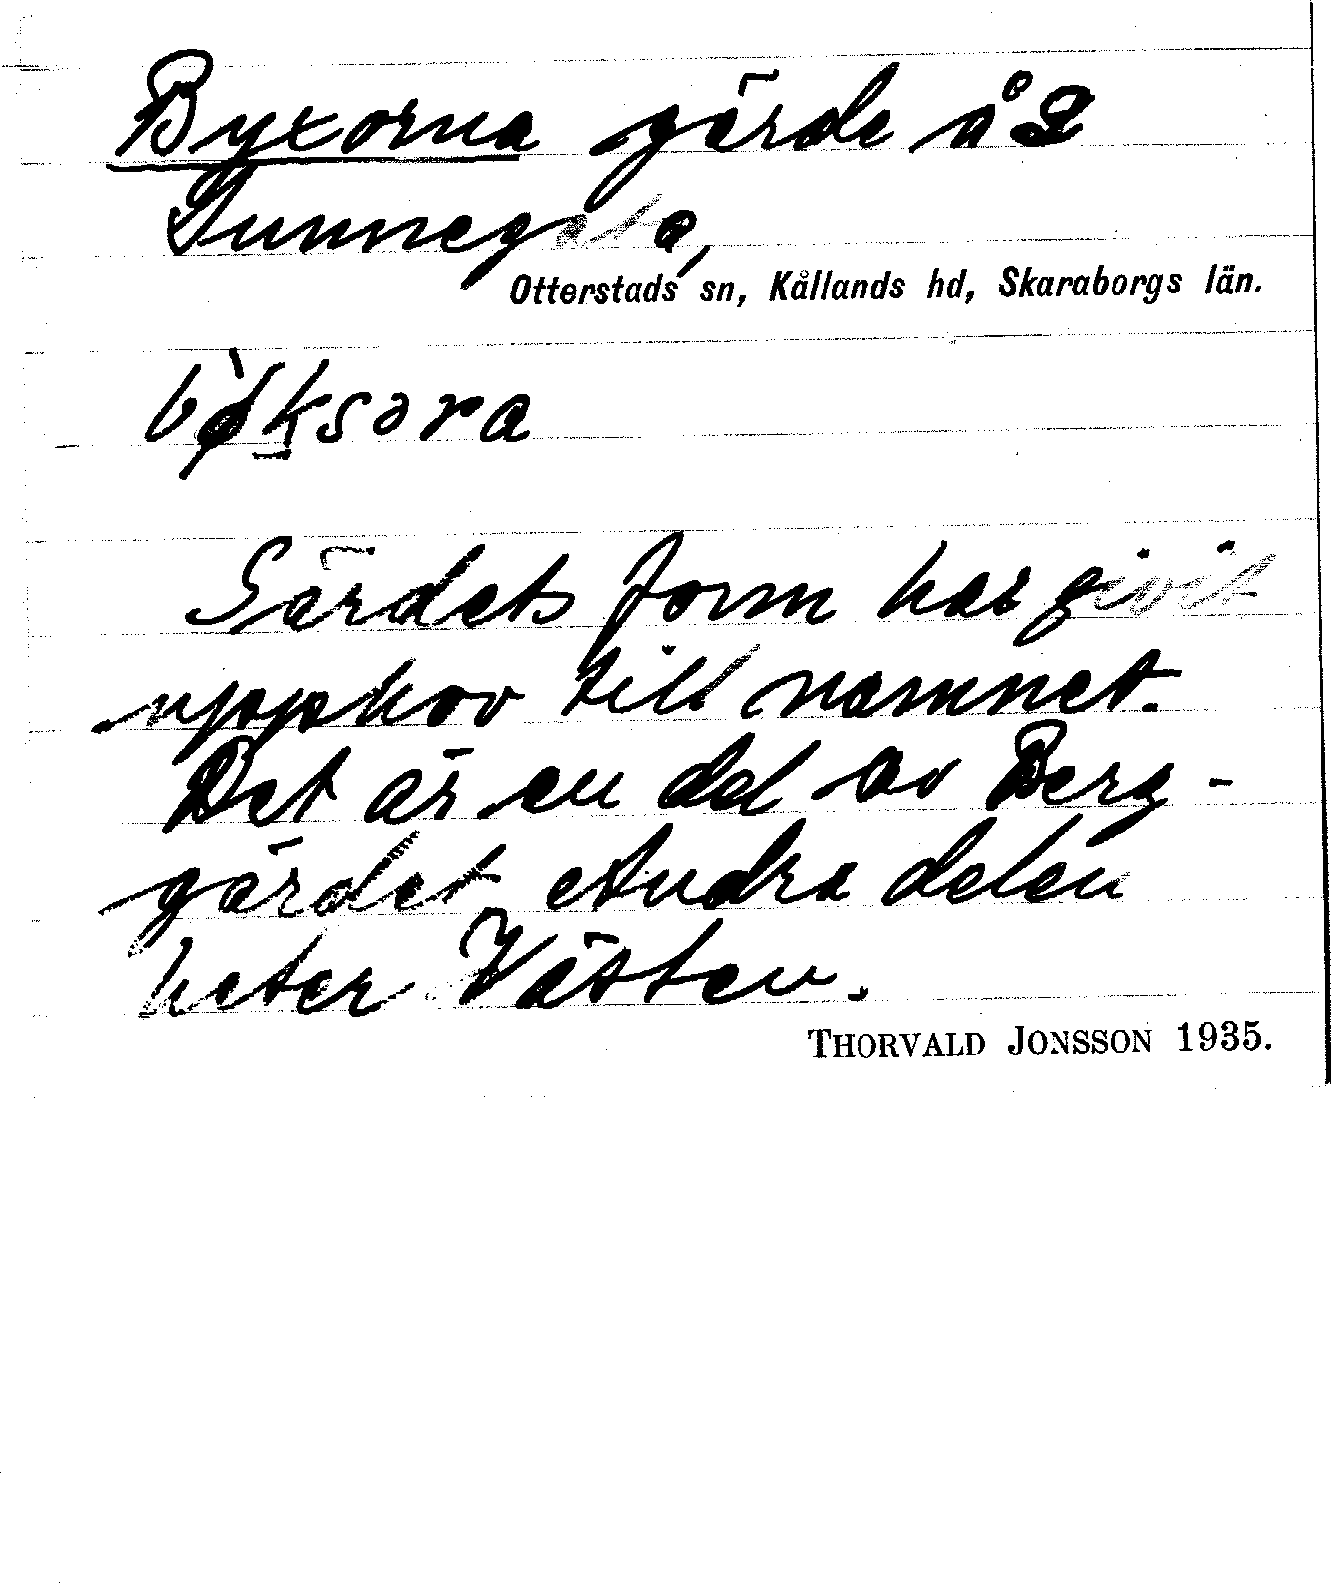 Byxorna gärde å 2
Tunnegata,
Otterstads sn, Kållands hd, Skaraborgs län.
bø̀ksɔra
Gärdets form har givit
upphov till namnet.
Det är en del av Berg-
gärdet. Andra delen
heter Västen.
THORVALD JONSSON 1935.